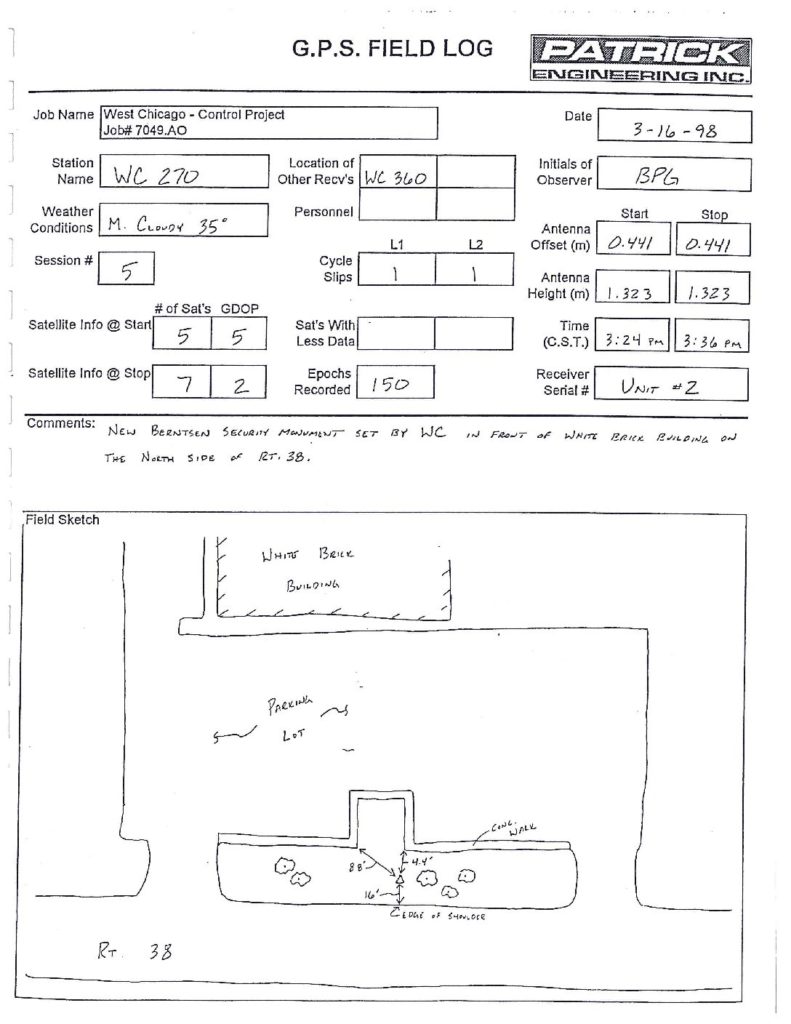 G.P.S. FIELD LOG
PATRICK
ENGINEERING INC.
Job Name West Chicago - Control Project
Job# 7049.AO
Date 3-16-98
Station Name WC 270
Location of Other Recv's WC 360
Initials of Observer BPG
Weather Conditions M. CLOUDY 35°
Personnel
Start Stop
Antenna Offset (m) 0.441 0.441
Session # 5
L1 L2
Cycle Slips 1 1
Antenna Height (m) 1.323 1.323
# of Sat's GDOP
Satellite Info @ Start 5 5
Sat's With Less Data
Time (C.S.T.) 3:24 PM 3:36 PM
Satellite Info @ Stop 7 2
Epochs Recorded 150
Receiver Serial # UNIT #2
Comments: NEW BERNTSEN SECURITY MONUMENT SET BY WC IN FRONT OF WHITE BRICK BUILDING ON
THE NORTH SIDE OF RT. 38.
Field Sketch
WHITE BRICK
BUILDING
PARKING
LOT
CONC.
WALK
4.4'
16'
EDGE OF SHOULDER
RT. 38